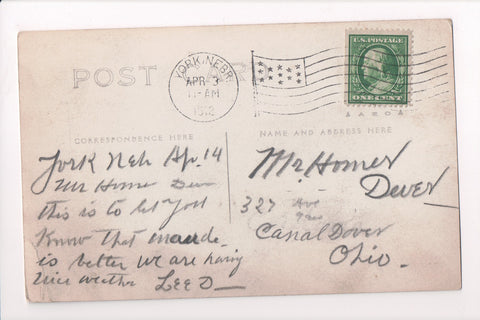 POST
YORK, NEBR.
APR 3
11-AM
1912
U.S. POSTAGE
ONE CENT
CORRESPONDENCE HERE
NAME AND ADDRESS HERE
York Neb Ap. 14
Mr Home Dev
this is to let you
Know that maude
is better we are havig
nice weather LEED
Mr Homer
Dever
327 Ave
Canal Dover
Ohio.